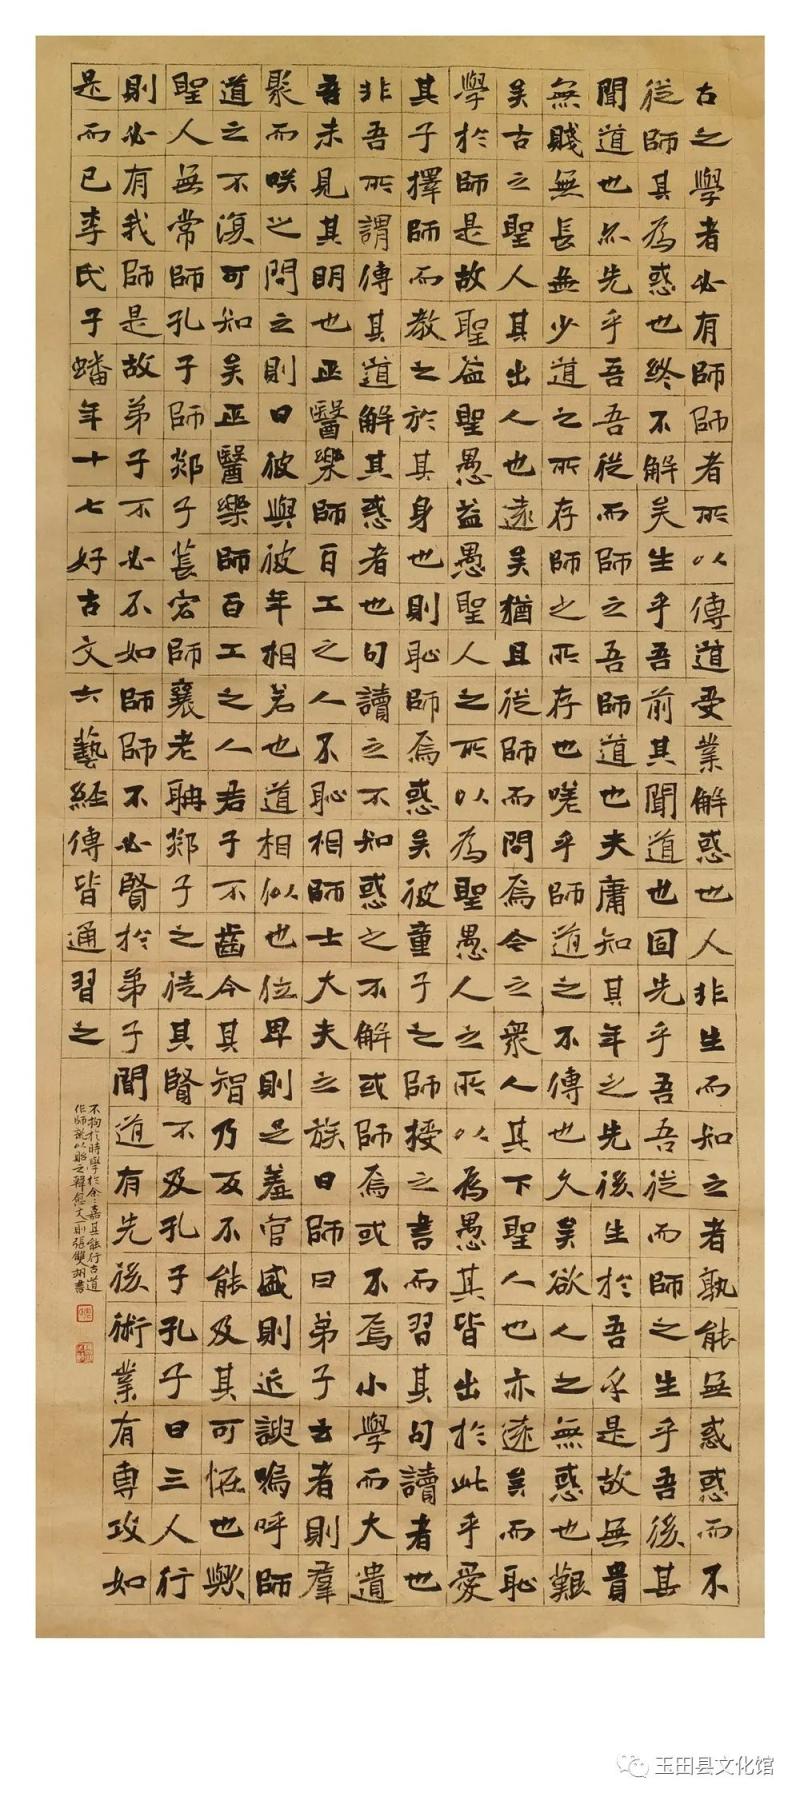 古之學者必有師師者所以傳道受業解惑也人非生而知之者孰能無惑惑而不
從師其為惑也終不解矣生乎吾前其聞道也固先乎吾吾從而師之生乎吾後其
聞道也亦先乎吾吾從而師之吾師道也夫庸知其年之先後生於吾乎是故無貴
無賤無長無少道之所存師之所存也嗟乎師道之不傳也久矣欲人之無惑也難
矣古之聖人其出人也遠矣猶且從師而問焉今之衆人其下聖人也亦遠矣而恥
學於師是故聖益聖愚益愚聖人之所以為聖愚人之所以為愚其皆出於此乎愛
其子擇師而教之於其身也則恥師焉惑矣彼童子之師授之書而習其句讀者也
非吾所謂傳其道解其惑者也句讀之不知惑之不解或師焉或不焉小學而大遺
吾未見其明也巫醫樂師百工之人不恥相師士大夫之族曰師曰弟子云者則羣
聚而咲之問之則曰彼與彼年相若也道相似也位卑則足羞官盛則近諛嗚呼師
道之不復可知矣巫醫樂師百工之人君子不齒今其智乃反不能及其可怪也歟
聖人無常師孔子師郯子萇宏師襄老聃郯子之徒其賢不及孔子孔子曰三人行
則必有我師是故弟子不必不如師師不必賢於弟子聞道有先後術業有專攻如
是而已李氏子蟠年十七好古文六藝經傳皆通習之
不拘於時學於余余嘉其能行古道
作師說以貽之韓愈文一則張雙書
玉田县文化馆